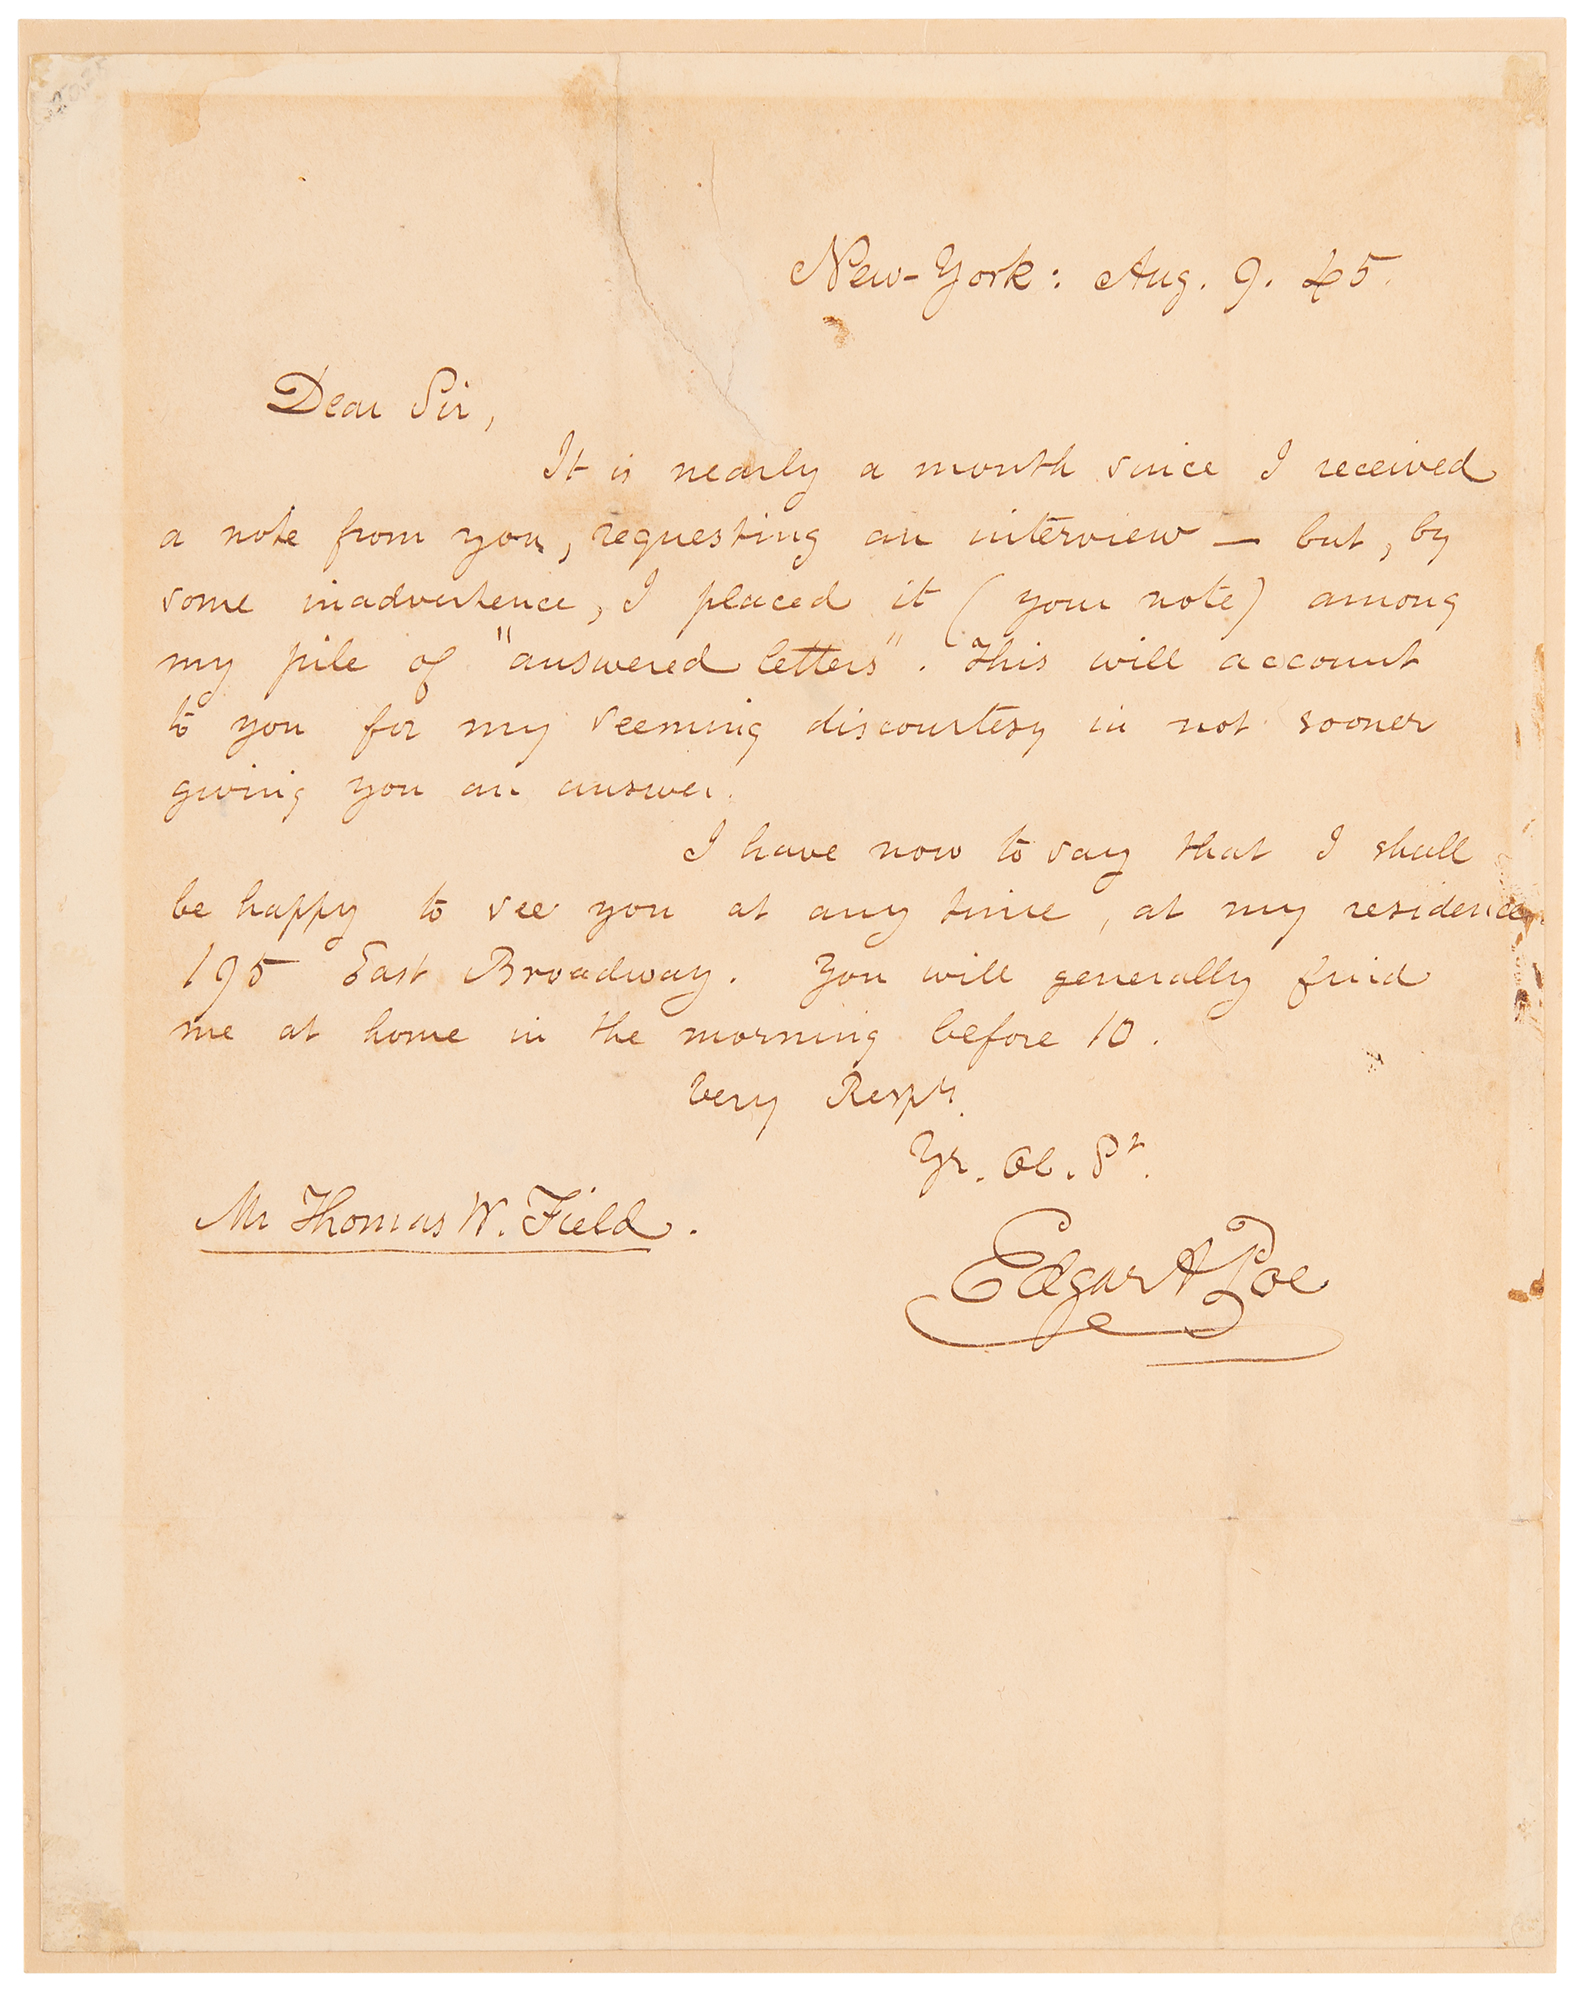 New-York: Aug. 9. 45.
Dear Sir,
It is nearly a month since I received
a note from you, requesting an interview — but, by
some inadvertence, I placed it (your note) among
my pile of "answered letters". This will account
to you for my seeming discourtesy in not sooner
giving you an answer.
I have now to say that I shall
be happy to see you at any time, at my residence,
195 East Broadway. You will generally find
me at home in the morning before 10.
Very Respy.
Yr. Ob. St.
Mr Thomas W. Field.
Edgar A Poe